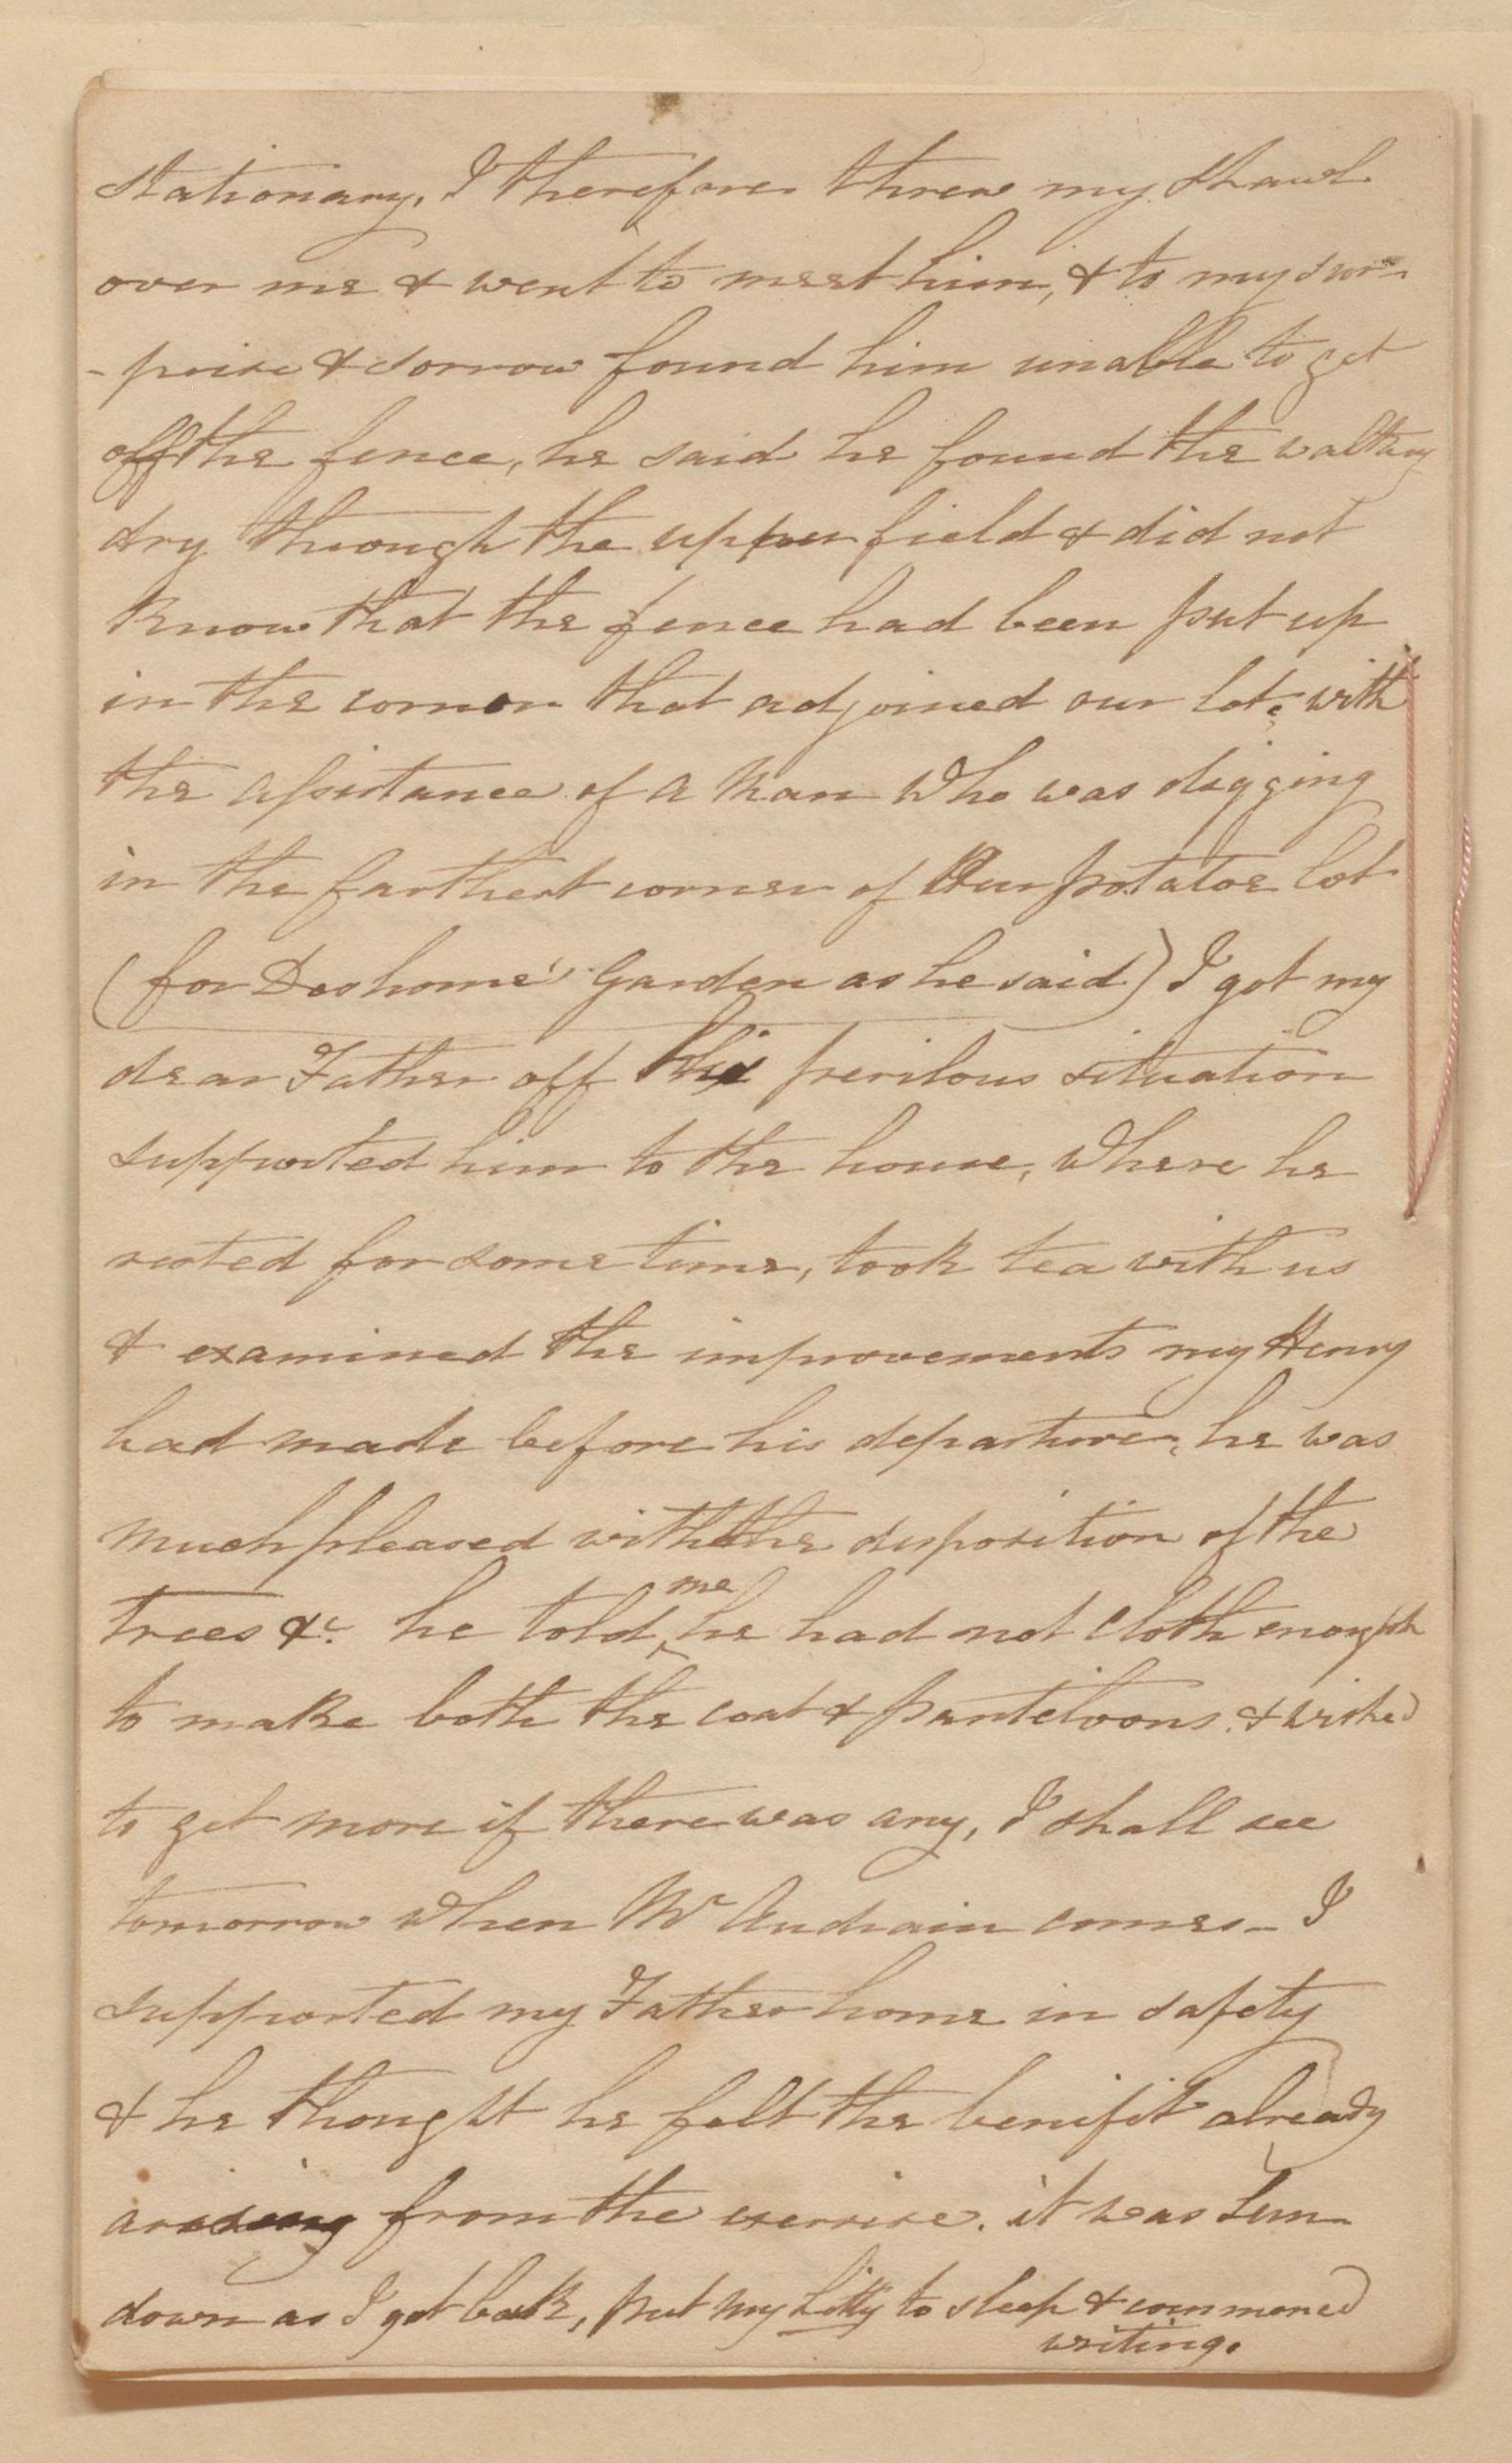 stationary, I therefore threw my shawl
over me & went to meet him, & to my sur-
-prise & sorrow found him unable to get
off the fence, he said he found the walking
dry through the upper field & did not
know that the fence had been put up
in the corner that adjoined our lot, with
the assistance of a Man who was digging
in the farthest corner of Our potatoe lot
(for Deshome's Garden as he said) I got my
dear Father off his perilous situation
supported him to the house, where he
rested for some time, took tea with us
& examined the improvements my Henry
had made before his departure, he was
much pleased with the disposition of the
trees &c. he told me he had not cloth enough
to make both the coat & panteloons. & wished
to get more if there was any, I shall see
tomorrow when Mr Audrain comes - I
supported my Father home in safety
& he thought he felt the benifit already
arising from the exercise. it was Sun-
down as I got back, put my Kitty to sleep & commenced
writing.